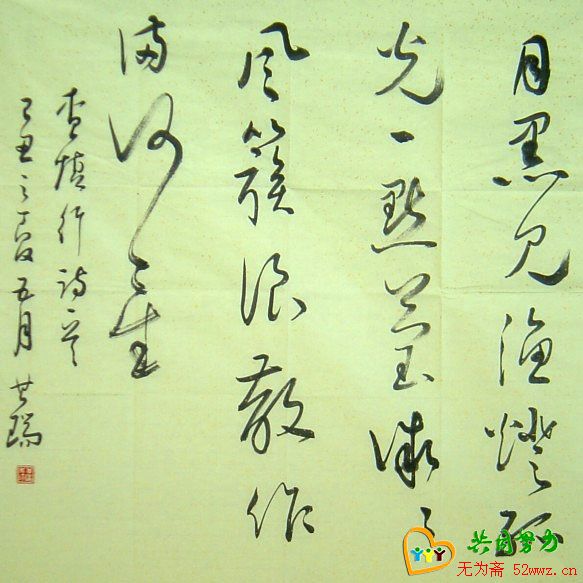 月黑见渔燈孤
光一點萤微々
风簇浪散作
满河星
查慎行诗一首
己丑之夏五月
共同努力
无为斋 52wwz.cn